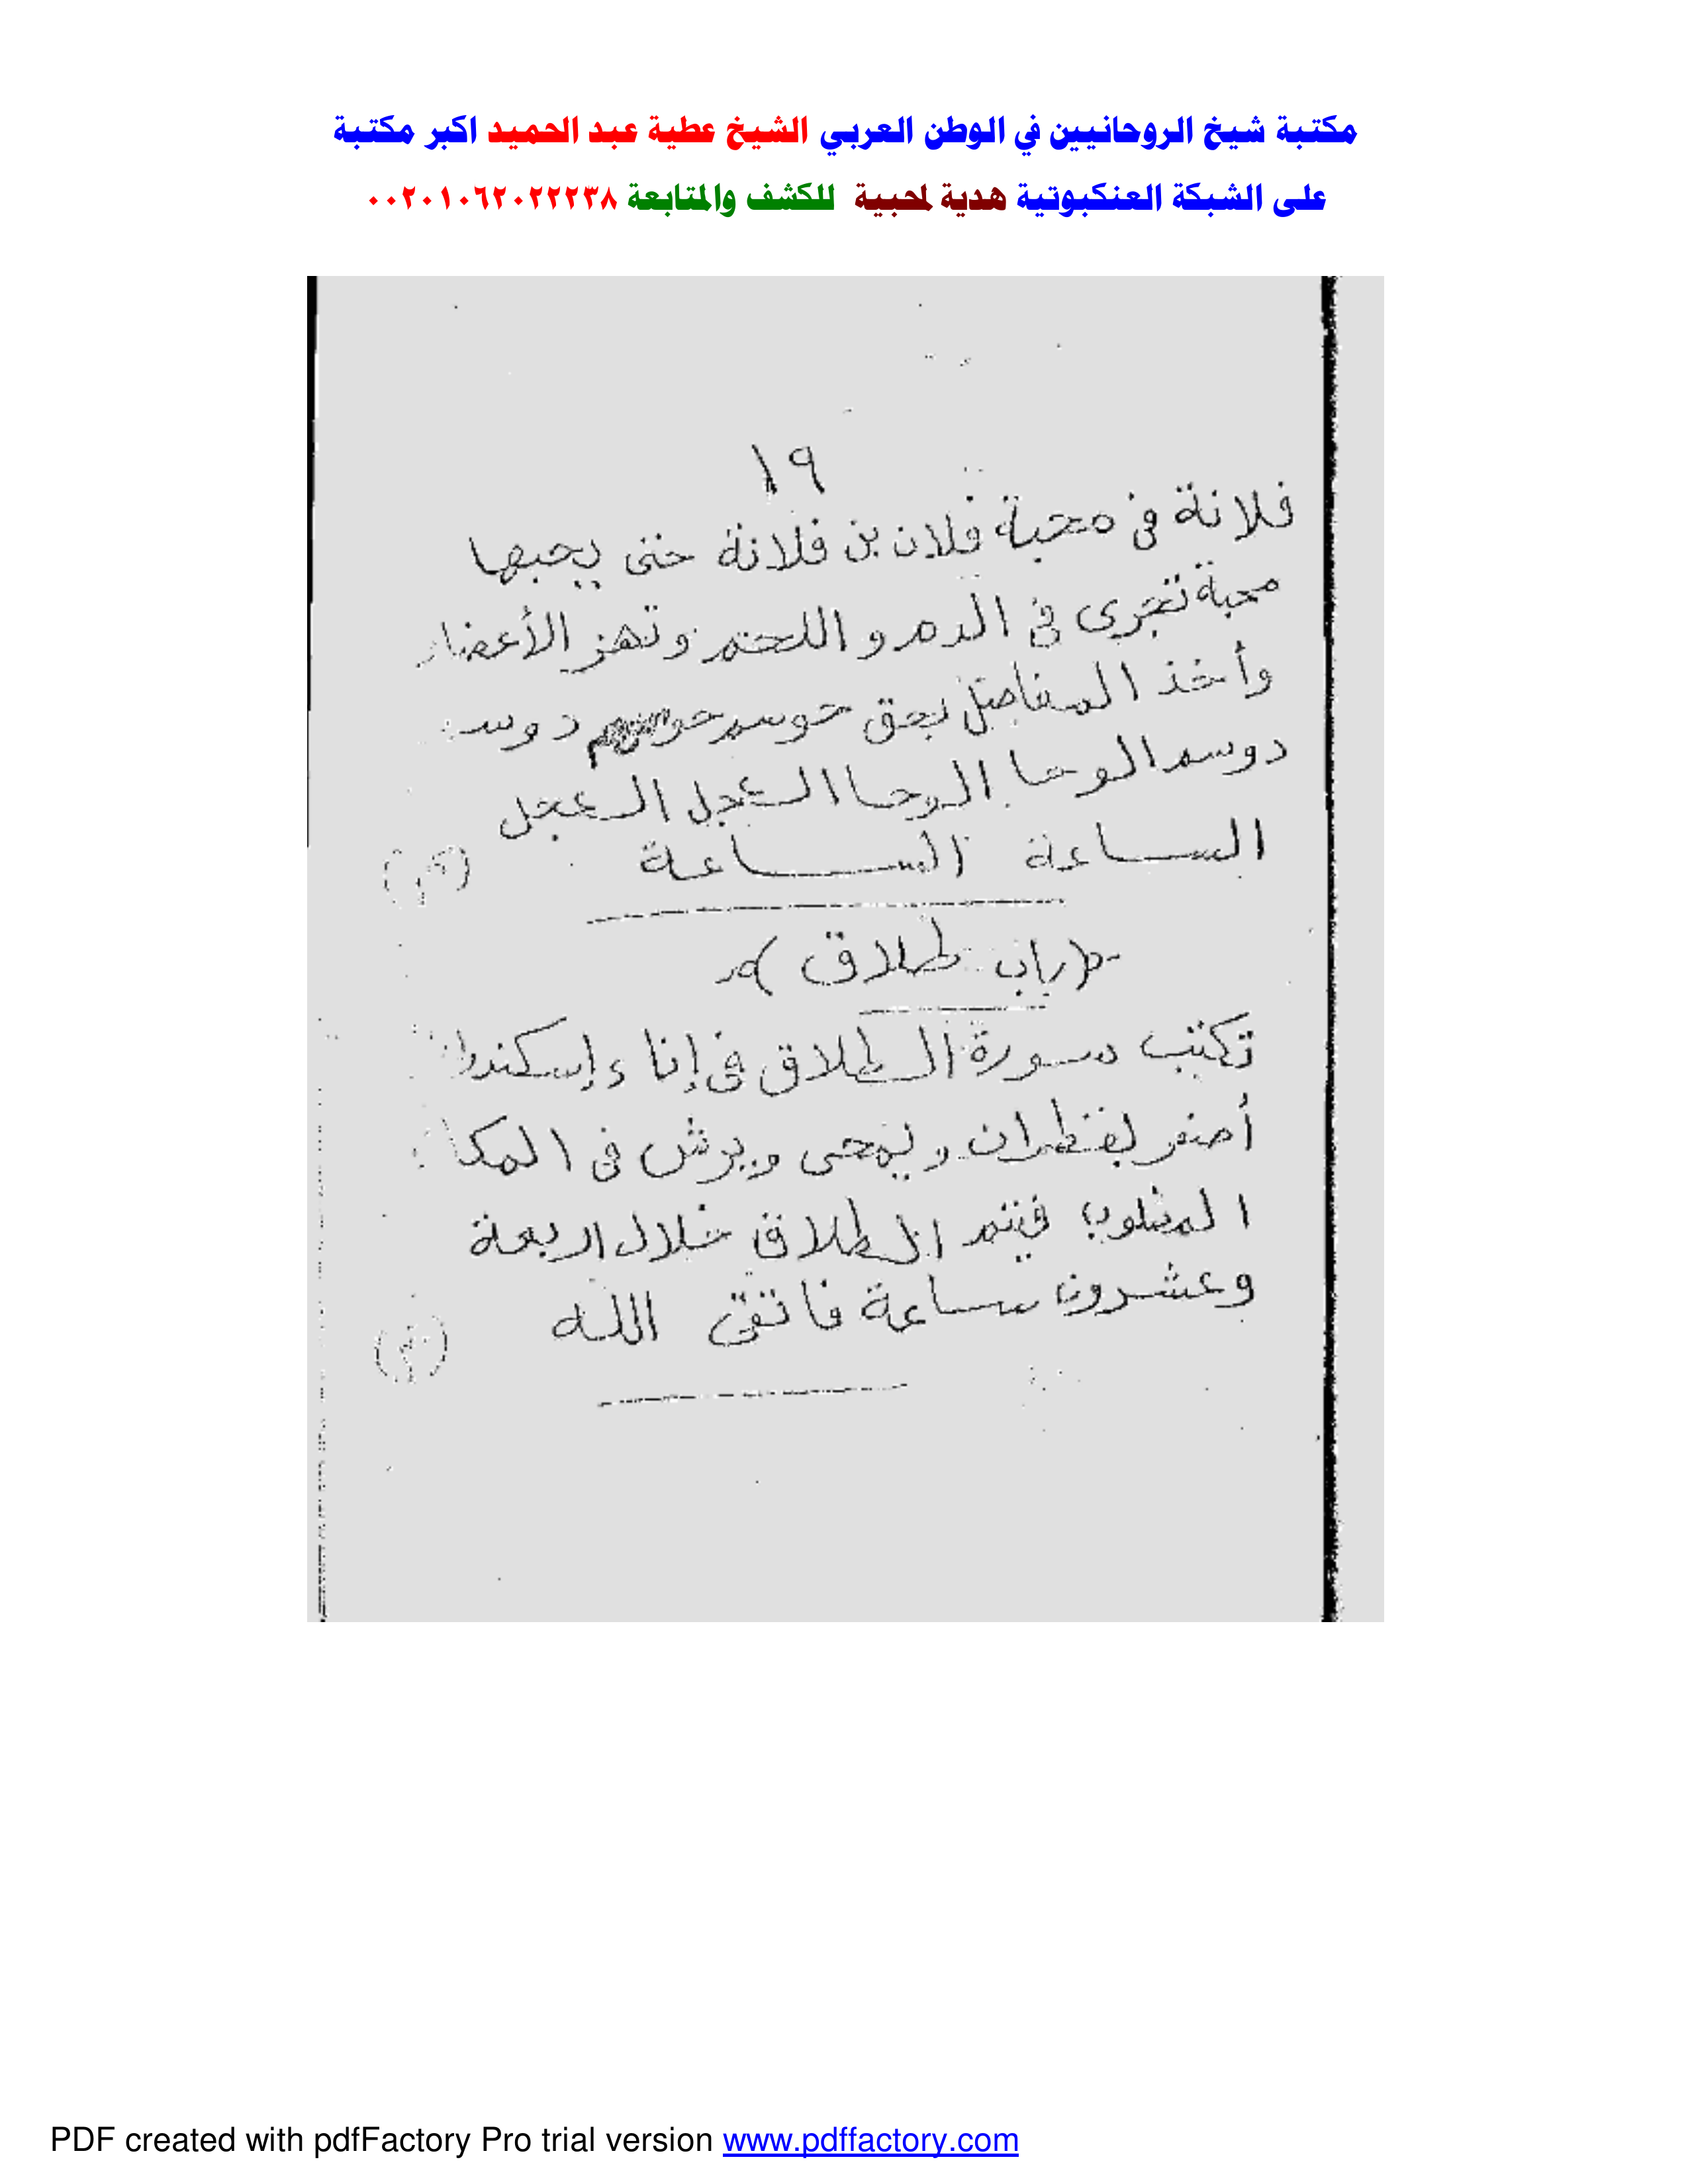 مكتبة شيخ الروحانيين في الوطن العربي الشيخ عطية عبد الحميد اكبر مكتبة
على الشبكة العنكبوتية هدية لمحبية للكشف والمتابعة ٠٠٢٠١٠٦٢٠٢٢٢٣٨
١٩
فلانة فى محبة فلان بن فلانة حتى يحبها
محبة تجرى فى الدم و اللحم وتهز الأعضاء
وأخذ المفاصل بحق حوسم دوسم
دوسم الوحا الوحا العجل العجل
الساعة الساعة
(باب طلاق)
تكتب سورة الطلاق فى إناء
أصفر بقطران و يمحى ويرش فى المكان
المطلوب فيتم الطلاق خلال اربعة
وعشرون ساعة فاتقى الله
PDF created with pdfFactory Pro trial version www.pdffactory.com